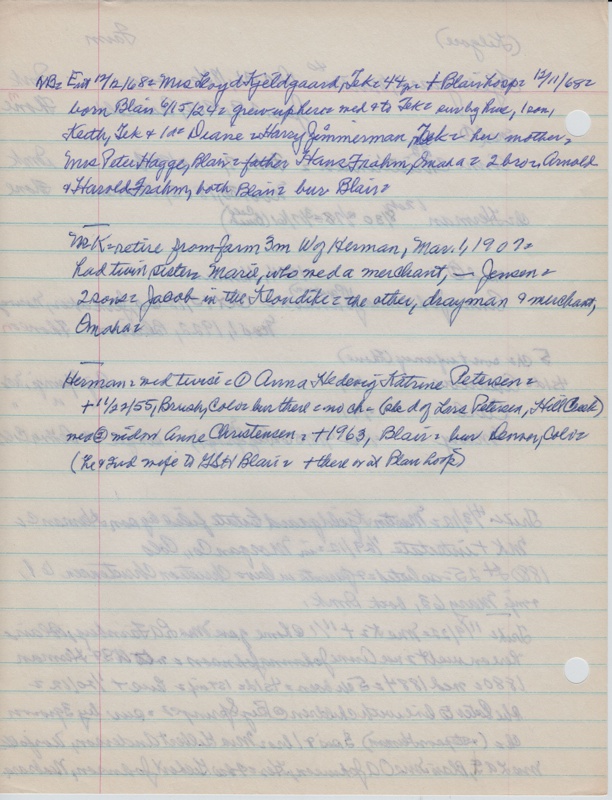 NB= Ent 12/12/68= Mrs Lloyd Kjeldgaard, Tek= 44, = + Blair hosp= 12/11/68=
born Blair 6/15/24= grew up here= med & to Tek= sur by hus, 1 son,
Keith, Tek & 1 d= Diane = Harry Jimmerman, Tek= her mother=
Mrs Peter Hagge, Blair= father Hans Frahm, Omaha = 2 bro= Arnold
& Harold Frahm, both Blair= bur Blair=
MrK= retire from farm 3m W of Herman, Mar. 1, 1907=
had twin sister= Marie, who med a merchant, — Jensen=
2 sons= Jacob in the Klondike= the other, drayman & merchant,
Omaha=
Herman= med twice= ① Anna Hedevig Katrine Petersen=
+ 11/22/55, Brush, Colo= bur there= no ch= (she d of Lars Petersen, Hill Creek)
med ② widow Anne Christensen= + 1963, Blair= bur Denver, Colo=
(he & 2nd wife to GS&H Blair= + there or at Blair hosp)